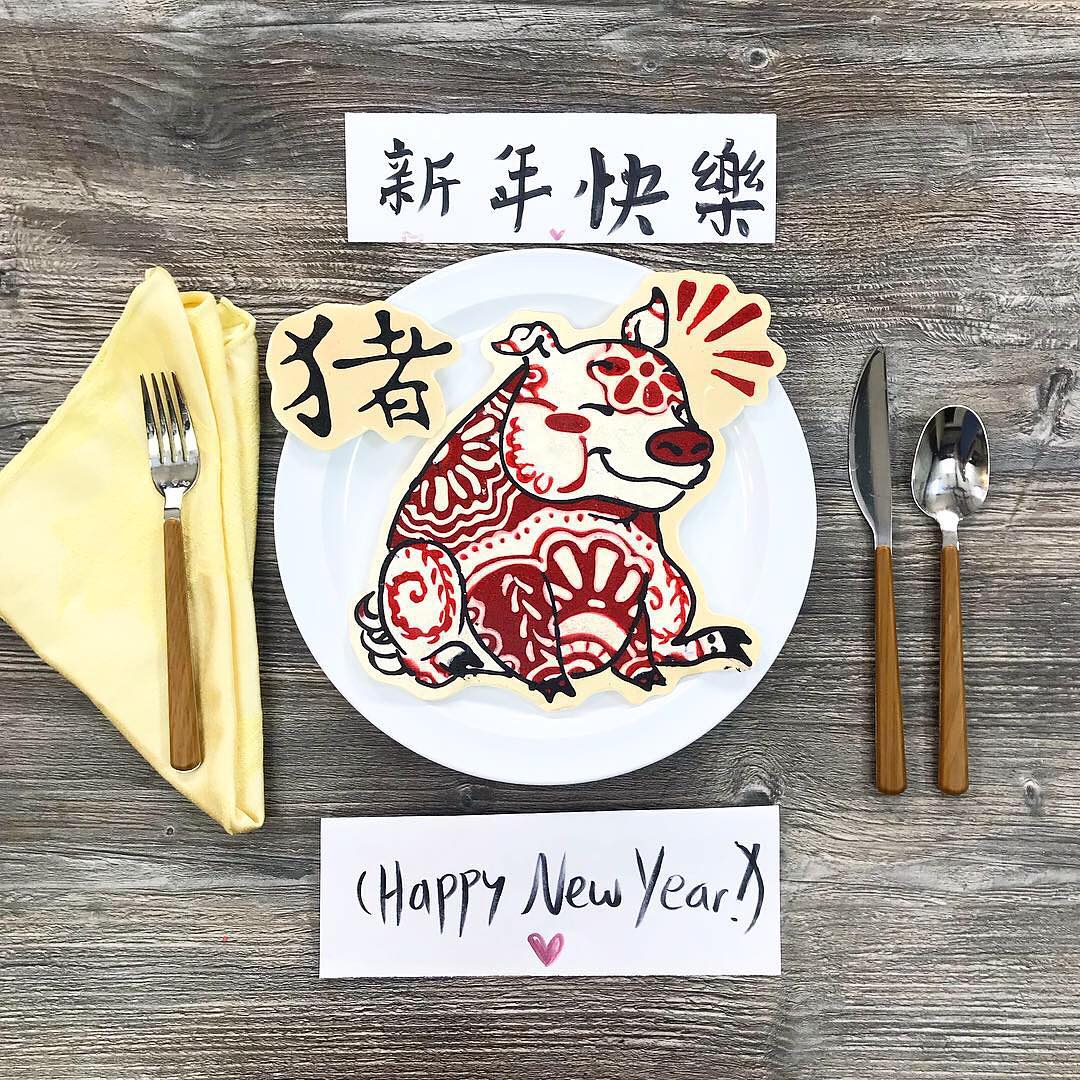 新年快樂
猪
(Happy New Year!)